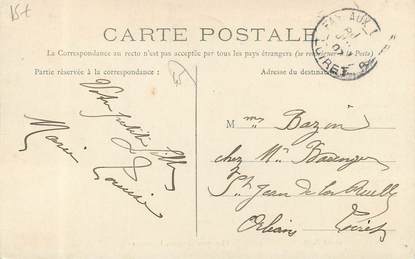 15+
CARTE POSTALE
La Correspondance au recto n'est pas acceptée par tous les pays étrangers (se renseigner à la Poste)
Partie réservée à la correspondance :
Adresse du destinataire
LOIRET
Votre
Marie Louise
M me Bazin
chez Mr
St Jean de la Ruelle
Orléans Loiret